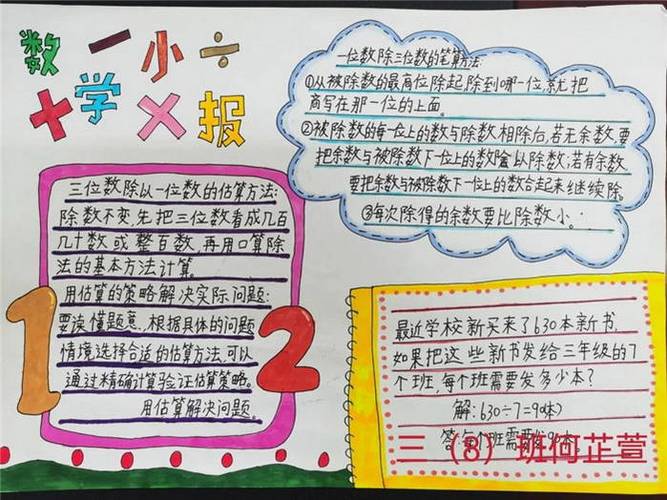 数 一 小 ÷
十 学 × 报
一位数除三位数的笔算方法:
①从被除数的最高位除起,除到哪一位,就把
商写在那一位的上面。
②被除数的每一位上的数与除数相除后,若无余数,要
把余数与被除数下一位上的数合以除数;若有余数,
要把余数与被除数下一位上的数合起来继续除。
③每次除得的余数要比除数小。
三位数除以一位数的估算方法:
除数不变,先把三位数看成几百
几十数或整百数,再用口算除
法的基本方法计算。
用估算的策略解决实际问题:
要读懂题意,根据具体的问题
情境选择合适的估算方法,可以
通过精确计算验证估算策略。
用估算解决问题。
1
2
最近学校新买来了630本新书,
如果把这些新书发给三年级的7
个班,每个班需要发多少本?
解:630÷7=90(本)
答:每个班需要发90本。
三(8)班何芷萱